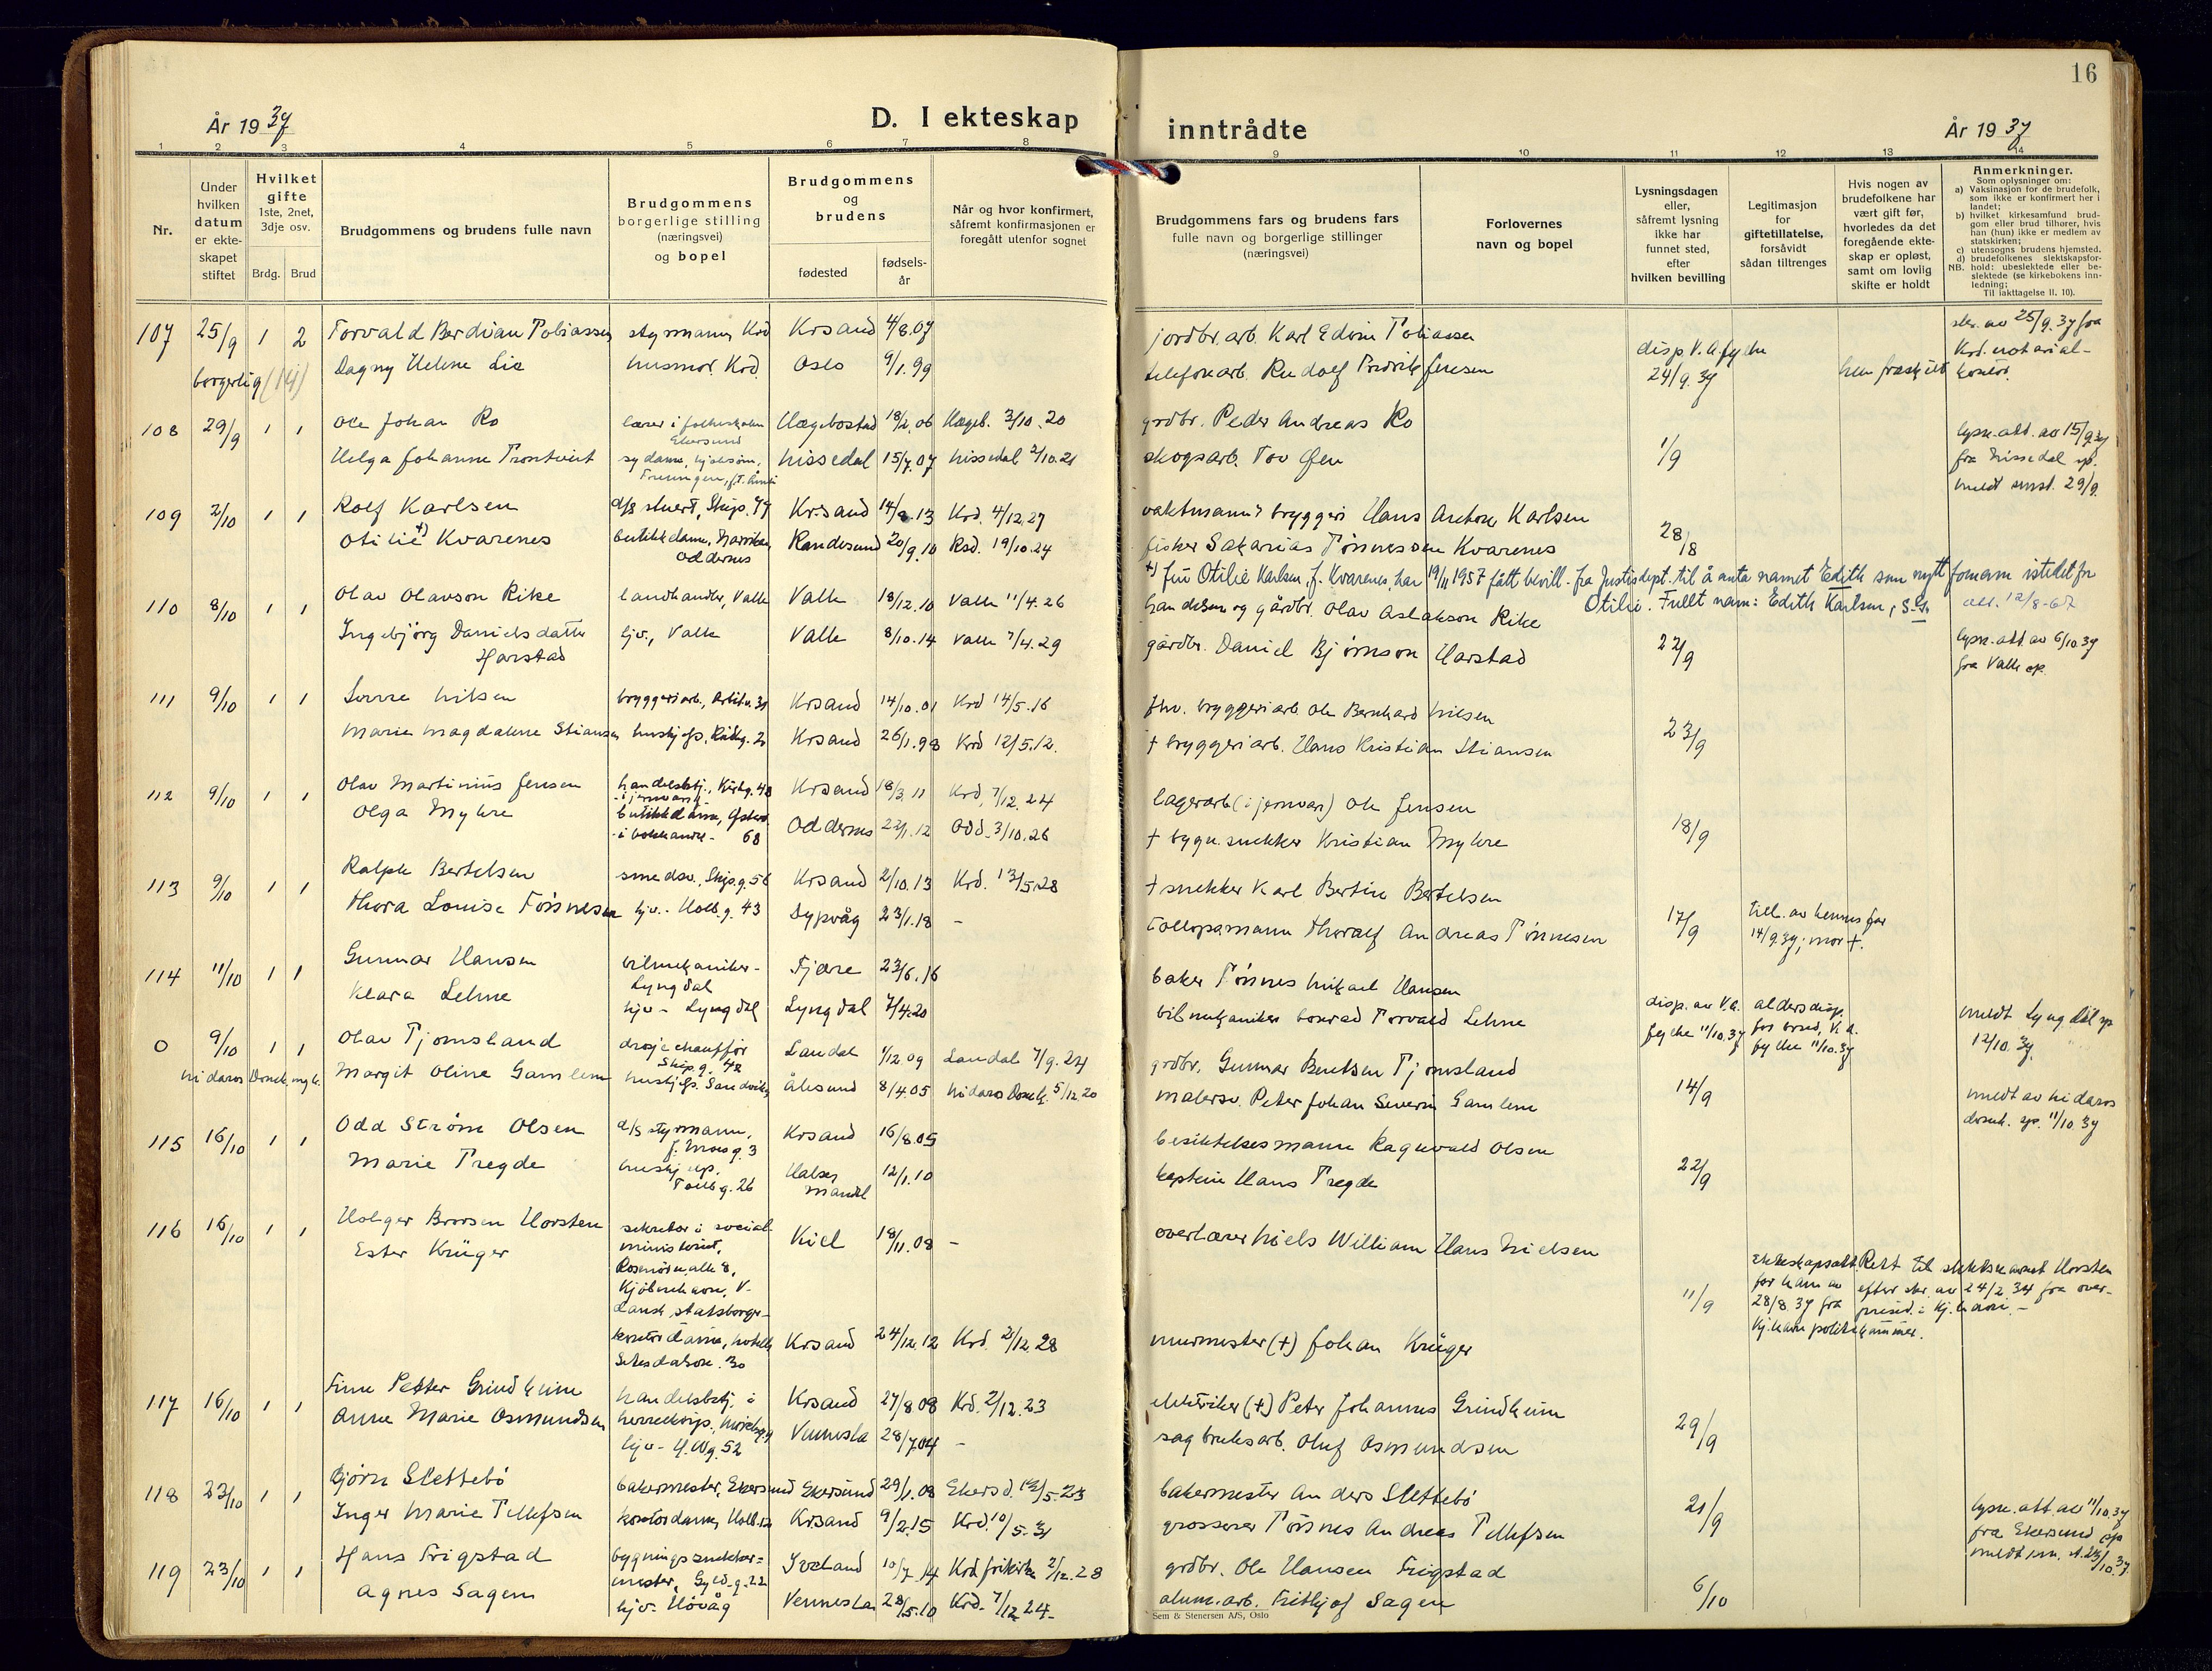 16
År 1937
D. I ekteskap
inntrådte
År 1937
1 2 3 4 5 6 7 8
9 10 11 12 13 14
Nr.
Under hvilken datum er ekteskapet stiftet
Hvilket gifte 1ste, 2net, 3dje osv.
Brdg. Brud
Brudgommens og brudens fulle navn
Brudgommens borgerlige stilling (næringsvei) og bopel
Brudgommens og brudens
fødested
fødselsår
Når og hvor konfirmert, såfremt konfirmasjonen er foregått utenfor sognet
Brudgommens fars og brudens fars fulle navn og borgerlige stillinger (næringsvei)
Forlovernes navn og bopel
Lysningsdagen eller, såfremt lysning ikke har funnet sted, efter hvilken bevilling
Legitimasjon for giftetillatelse, forsåvidt sådan tiltrenges
Hvis nogen av brudefolkene har vært gift før, hvorledes da det foregående ekteskap er opløst, samt om lovlig skifte er holdt
Anmerkninger.
Som oplysninger om:
a) Vaksinasjon for de brudefolk, som ikke er konfirmert her i landet;
b) hvilket kirkesamfund brudgom eller brud tilhører, hvis han (hun) ikke er medlem av statskirken;
c) utensogns brudens hjemsted.
d) brudefolkenes slektskapsforhold: ubeslektede eller beslektede (se kirkebokens innledning;
NB. Til iakttagelse II. 10).
107 25/9 1 2 Torvald Berdian Tobiassen styrmann, Krd Krsand 4/8.07 jordbr.arb. Karl Edvin Tobiassen disp. V.A. fylke skr. av 25/9.37 fra
borgerlig (14) Dagny Helene Lie husmor. Krd. Oslo 9/1.99 telefonarb. Rudolf Fredrik Jensen 24/9.37 hun fraskilt Krd. notarialkontor.
108 29/9 1 1 Ole Johan Ro lærer i folkeskolen Ekersund Hægebostad 18/2.06 Hægeb. 3/10.20 grdbr. Peder Andreas Ro 1/9 lysn.att. av 15/9.37
Helga Johanne Trontveit sydame, Nissedal 15/7.07 Nissedal 2/10.21 skogsarb. Tov fra Nissedal sp. meldt smst. 29/9.
109 2/10 1 1 Rolf Karlsen d/s stuert, Skips. 79 Krsand 14/8.13 Krd. 4/12.27 vaktmann i bryggeri Hans Anton Karlsen 28/8
Otilie +) Kvarenes butikkdame, Narviken, Oddernes Randesund 20/9.10 Rsd. 19/10.24 fisker Sakarias Tønnessen Kvarenes
+) fru Otilie Karlsen, f. Kvarenes, har 19/11 1957 fått bevill. fra Justisdept. til å anta namet Edith som nytt fornavn istedet for
Otilie. Fullt navn: Edith Karlsen, S.G. att. 12/8-67
110 8/10 1 1 Olav Olavson Rike landhandler, Valle Valle 18/12.10 Valle 11/4.26 handelsm. og gårdbr. Olav Aslakson Rike 22/9
Ingebjørg Danielsdatter Harstad hjv., Valle Valle 8/10.14 Valle 7/4.29 gårdbr. Daniel Bjørnson Harstad lysn.att. av 6/10.37 fra Valle sp.
111 9/10 1 1 Sverre Nilsen bryggeriarb., Krsand 14/10.01 Krd 14/5.16 fhv. bryggeriarb. Ole Bernhard Nilsen 23/9
Marie Magdalene Stiansen hushj., Krsand 26/1.98 Krd 12/5.12. + bryggeriarb. Hans Kristian Stiansen
112 9/10 1 1 Olav Martinius Jensen handelsbtj., Kirkg. 48 Krsand 18/3.11 Krd. 7/12.24 lagerarb. (i jernvarf) Ole Jensen 18/9
Olga Myhre butikkdame, i bokhandel 68 Oddernes 22/1.12 Odd. 3/10.26 + bygn.snekker Kristian Myhre
113 9/10 1 1 Ralph Bertelsen smedsv., Skip.g. 56 Krsand 2/10.13 Krd. 13/5.28 + snekker Karl Bertin Bertelsen 17/9
Thora Louise Tønnesen hjv. - Holb.g. 43 Dypvåg 23/1.18 - tollopsmann Thoralf Andreas Tønnesen till. av hennes far 14/9.37; mor +.
114 11/10 1 1 Gunnar Hansen bilmekaniker - Lyngdal Fjære 23/6.16 baker Tønnes Mikael Hansen disp. av V.A. fylke 11/10.37 aldersdisp. for brud, V.A. fylke 11/10.37 meldt Lyngdal sp
Klara Lehne hjv - Lyngdal Lyngdal 7/4.20 bilmekaniker Conrad Torvald Lehne 12/10.37.
0 9/10 1 1 Olav Tjomsland drosjechauffør Skip.g. 42 Laudal 1/12.09 Laudal 7/9.24 grdbr. Gunnar Bentsen Tjomsland 14/9
Nidaros Domk. Margit Oline Gamlem hushj. Sandviks Ålesund 8/4.05 Nidaros Domk. 5/12.20 malersv. Peter Johan Severin Gamlem meldt av Nidaros domk. sp. 11/10.37
115 16/10 1 1 Odd Strøm Olsen d/s styrmann, J. Moesg. 3 Krsand 16/8.05 besiktelsesmann Ragnvald Olsen 22/9
Marie Tregde hushjelp, Tollb.g. 26 Halse, Mandal 12/1.10 kaptein Hans Tregde
116 16/10 1 1 Holger Brorsen Horsten sekretær i socialministeriet, Kiel 18/11.08 - overlærer Niels William Hans Nielsen
Ester Krüger Rosenørns alle 8, Kjøbenhavn, V. dansk statsborger 11/9 ekteskapsatt. for ham av 28/8.37 fra Kj.havns politikammer. Rett til slektsnavnet Horsten efter skr. av 24/2.34 fra overpresid. i Kj.havn. -
kontordame, hotell Setesdalsv. 30 Krsand 24/12.12 Krd. 2/12.28 murmester (+) Johan Krüger
117 16/10 1 1 Finn Petter Grindheim handelsbtj. i herreekvip. Krsand 27/8.08 Krd. 2/12.23 elektriker (+) Peter Johannes Grindheim 29/9
Anne Marie Osmundsen hjv - H.W.g. 52 Vennesla 28/7.04 - sagbruksarb. Oluf Osmundsen
118 23/10 1 1 Bjørn Slettebø bakermester, Ekersund Ekersund 29/1.08 Ekersd. 13/5.23 bakermester Anders Slettebø 21/9 lysn.att. av 11/10.37
Inger Marie Tellefsen kontordame, Holb. Krsand 9/2.15 Krd. 10/5.31 grosserer Tønnes Andreas Tellefsen fra Ekersund sp
119 23/10 1 1 Hans Frigstad bygningssnekkermester, Gyld.g. 22 Iveland 10/7.14 Krd frikirke 2/12.28 grdbr. Ole Hansen Frigstad 6/10 meldt 23/10.37.
Agnes Sagen hjv. Høvåg Vennesla 28/5.10 Krd. 7/12 24. alum.arb. Fritjof Sagen
Sem & Stenersen A/S, Oslo